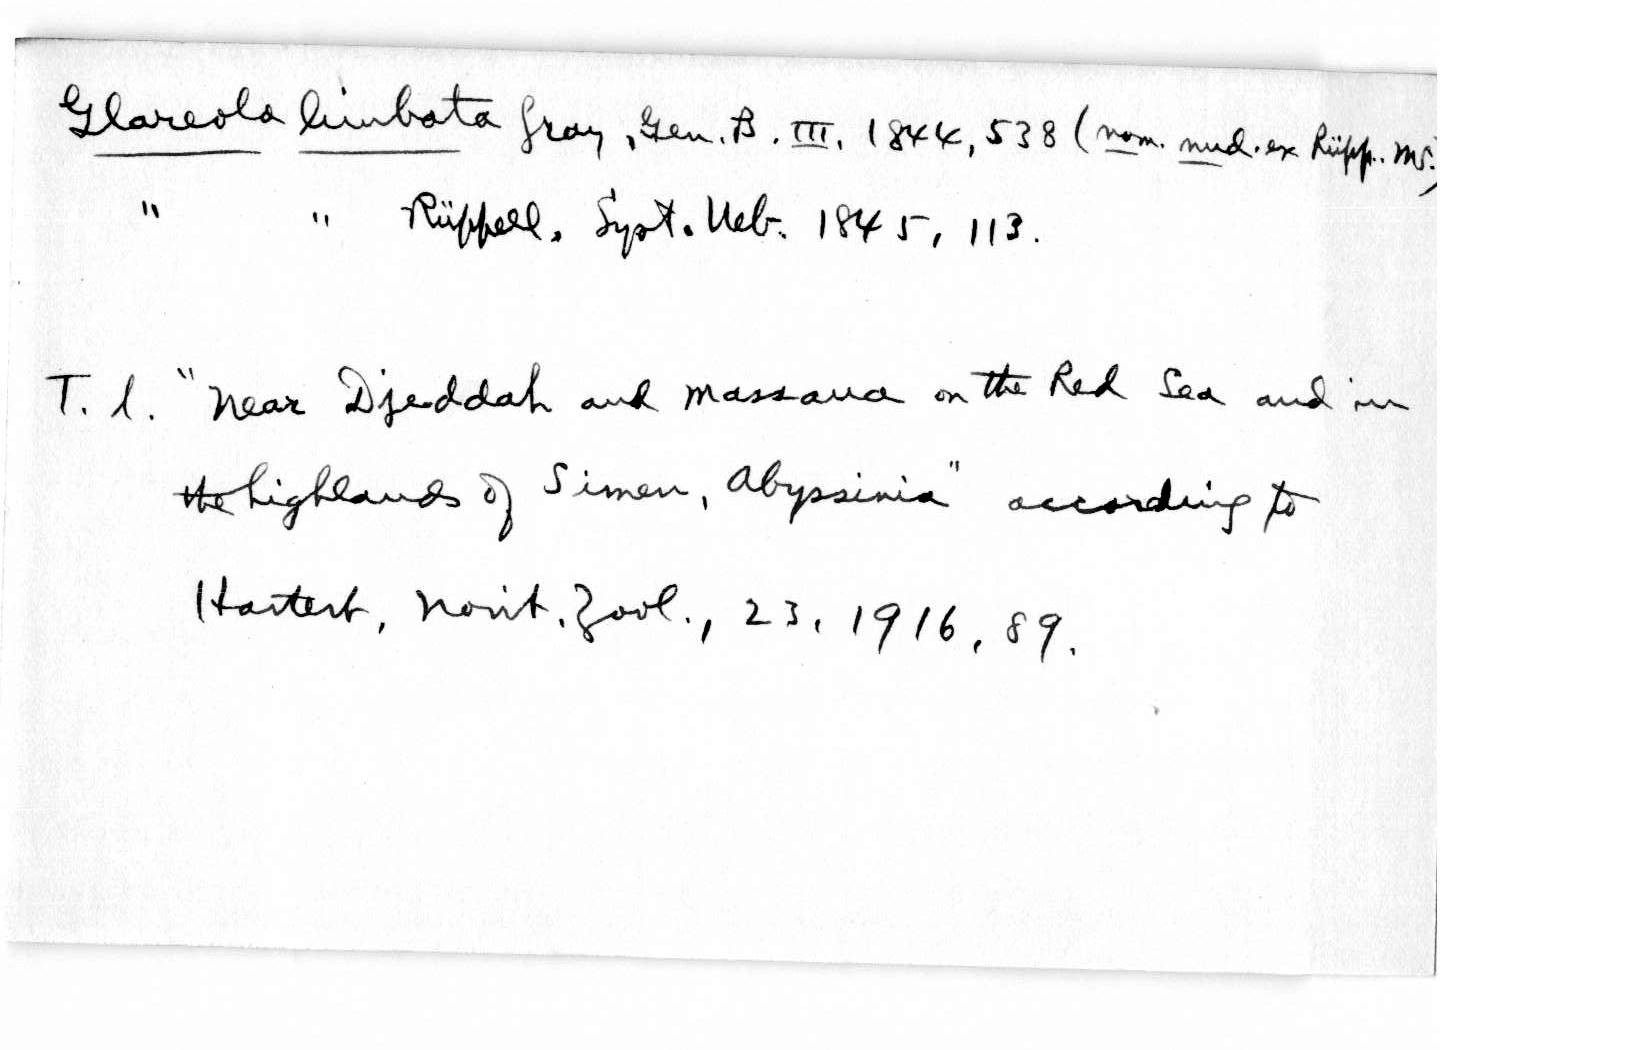 Glareola limbata Gray, Gen. B. III, 1844, 538 (nom. nud. ex Rüpp. MS.)
" " Rüppell, Syst. Ueb. 1845, 113.
T. l. "Near Djeddah and Massaua on the Red Sea and in
the highlands of Simen, Abyssinia" according to
Hartert, Novit. Zool., 23, 1916, 89.